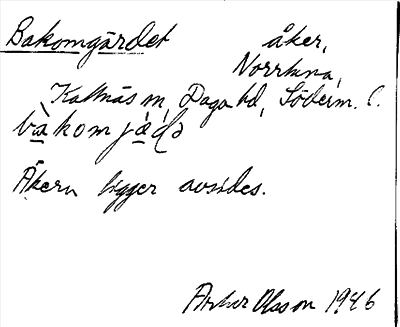 Bakomgärdet åker,
Norrtuna,
Kattnäs sn, Daga hd, Söderm. l.
bàkomjàḍə
Åkern ligger avsides.
Arthur Olsson 1946